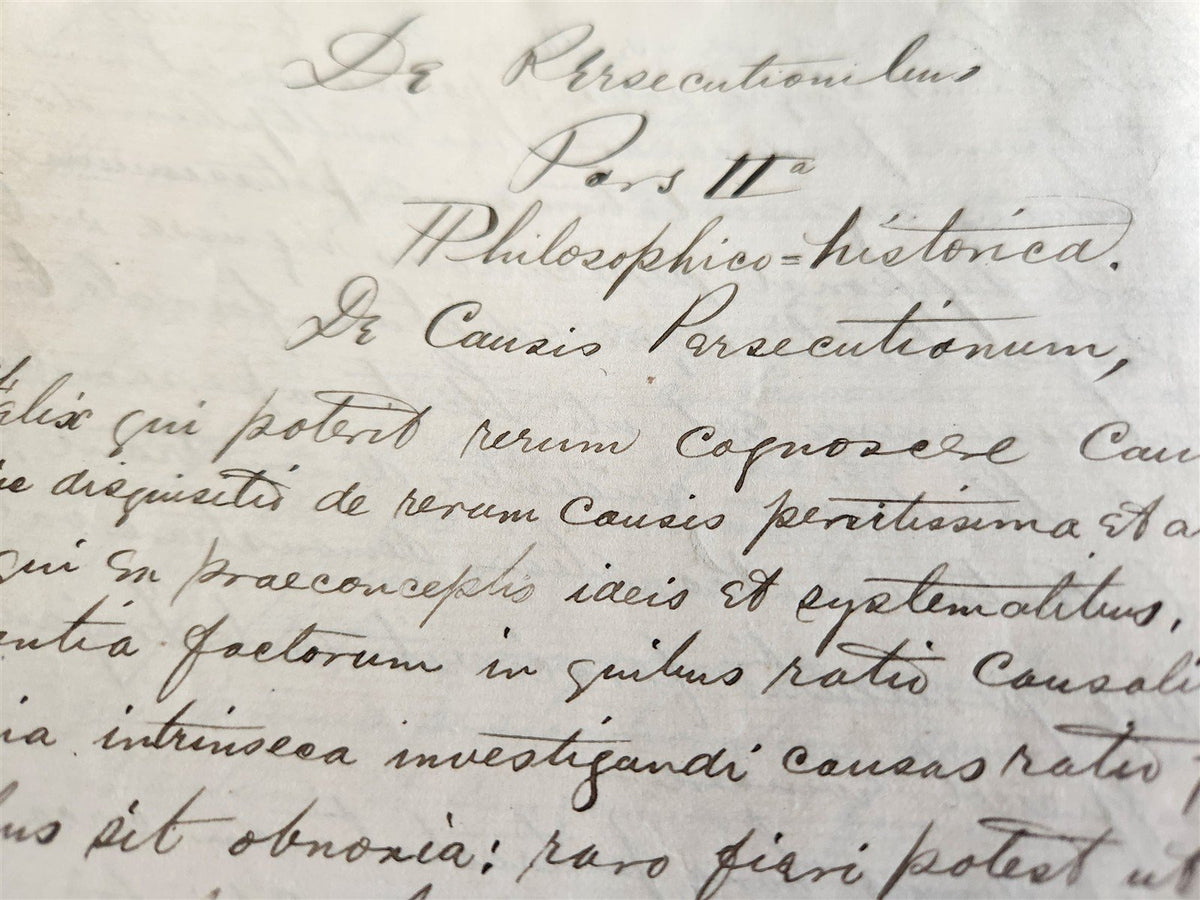 De Persecutionibus
Pars IIa
Philosophico=historica.
De Causis Persecutionum,
elix qui poterit rerum cognoscere Cau
disquisitio de rerum causis et a
qui ex praeconceptis ideis et systematibus,
entia factorum in quibus ratio causali
ia intrinseca investigandi causas ratio
us sit obnoxia: raro fieri potest ut